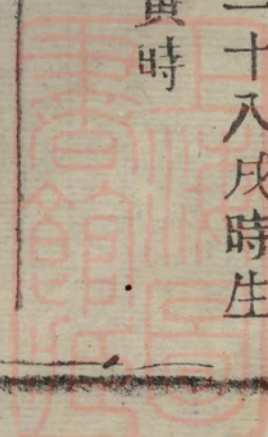 十八戌時生
寅時